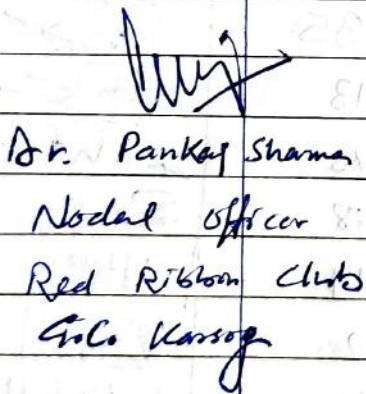 Dr. Pankaj Sharma
Nodal Officer
Red Ribbon Club
G.C. Karsog